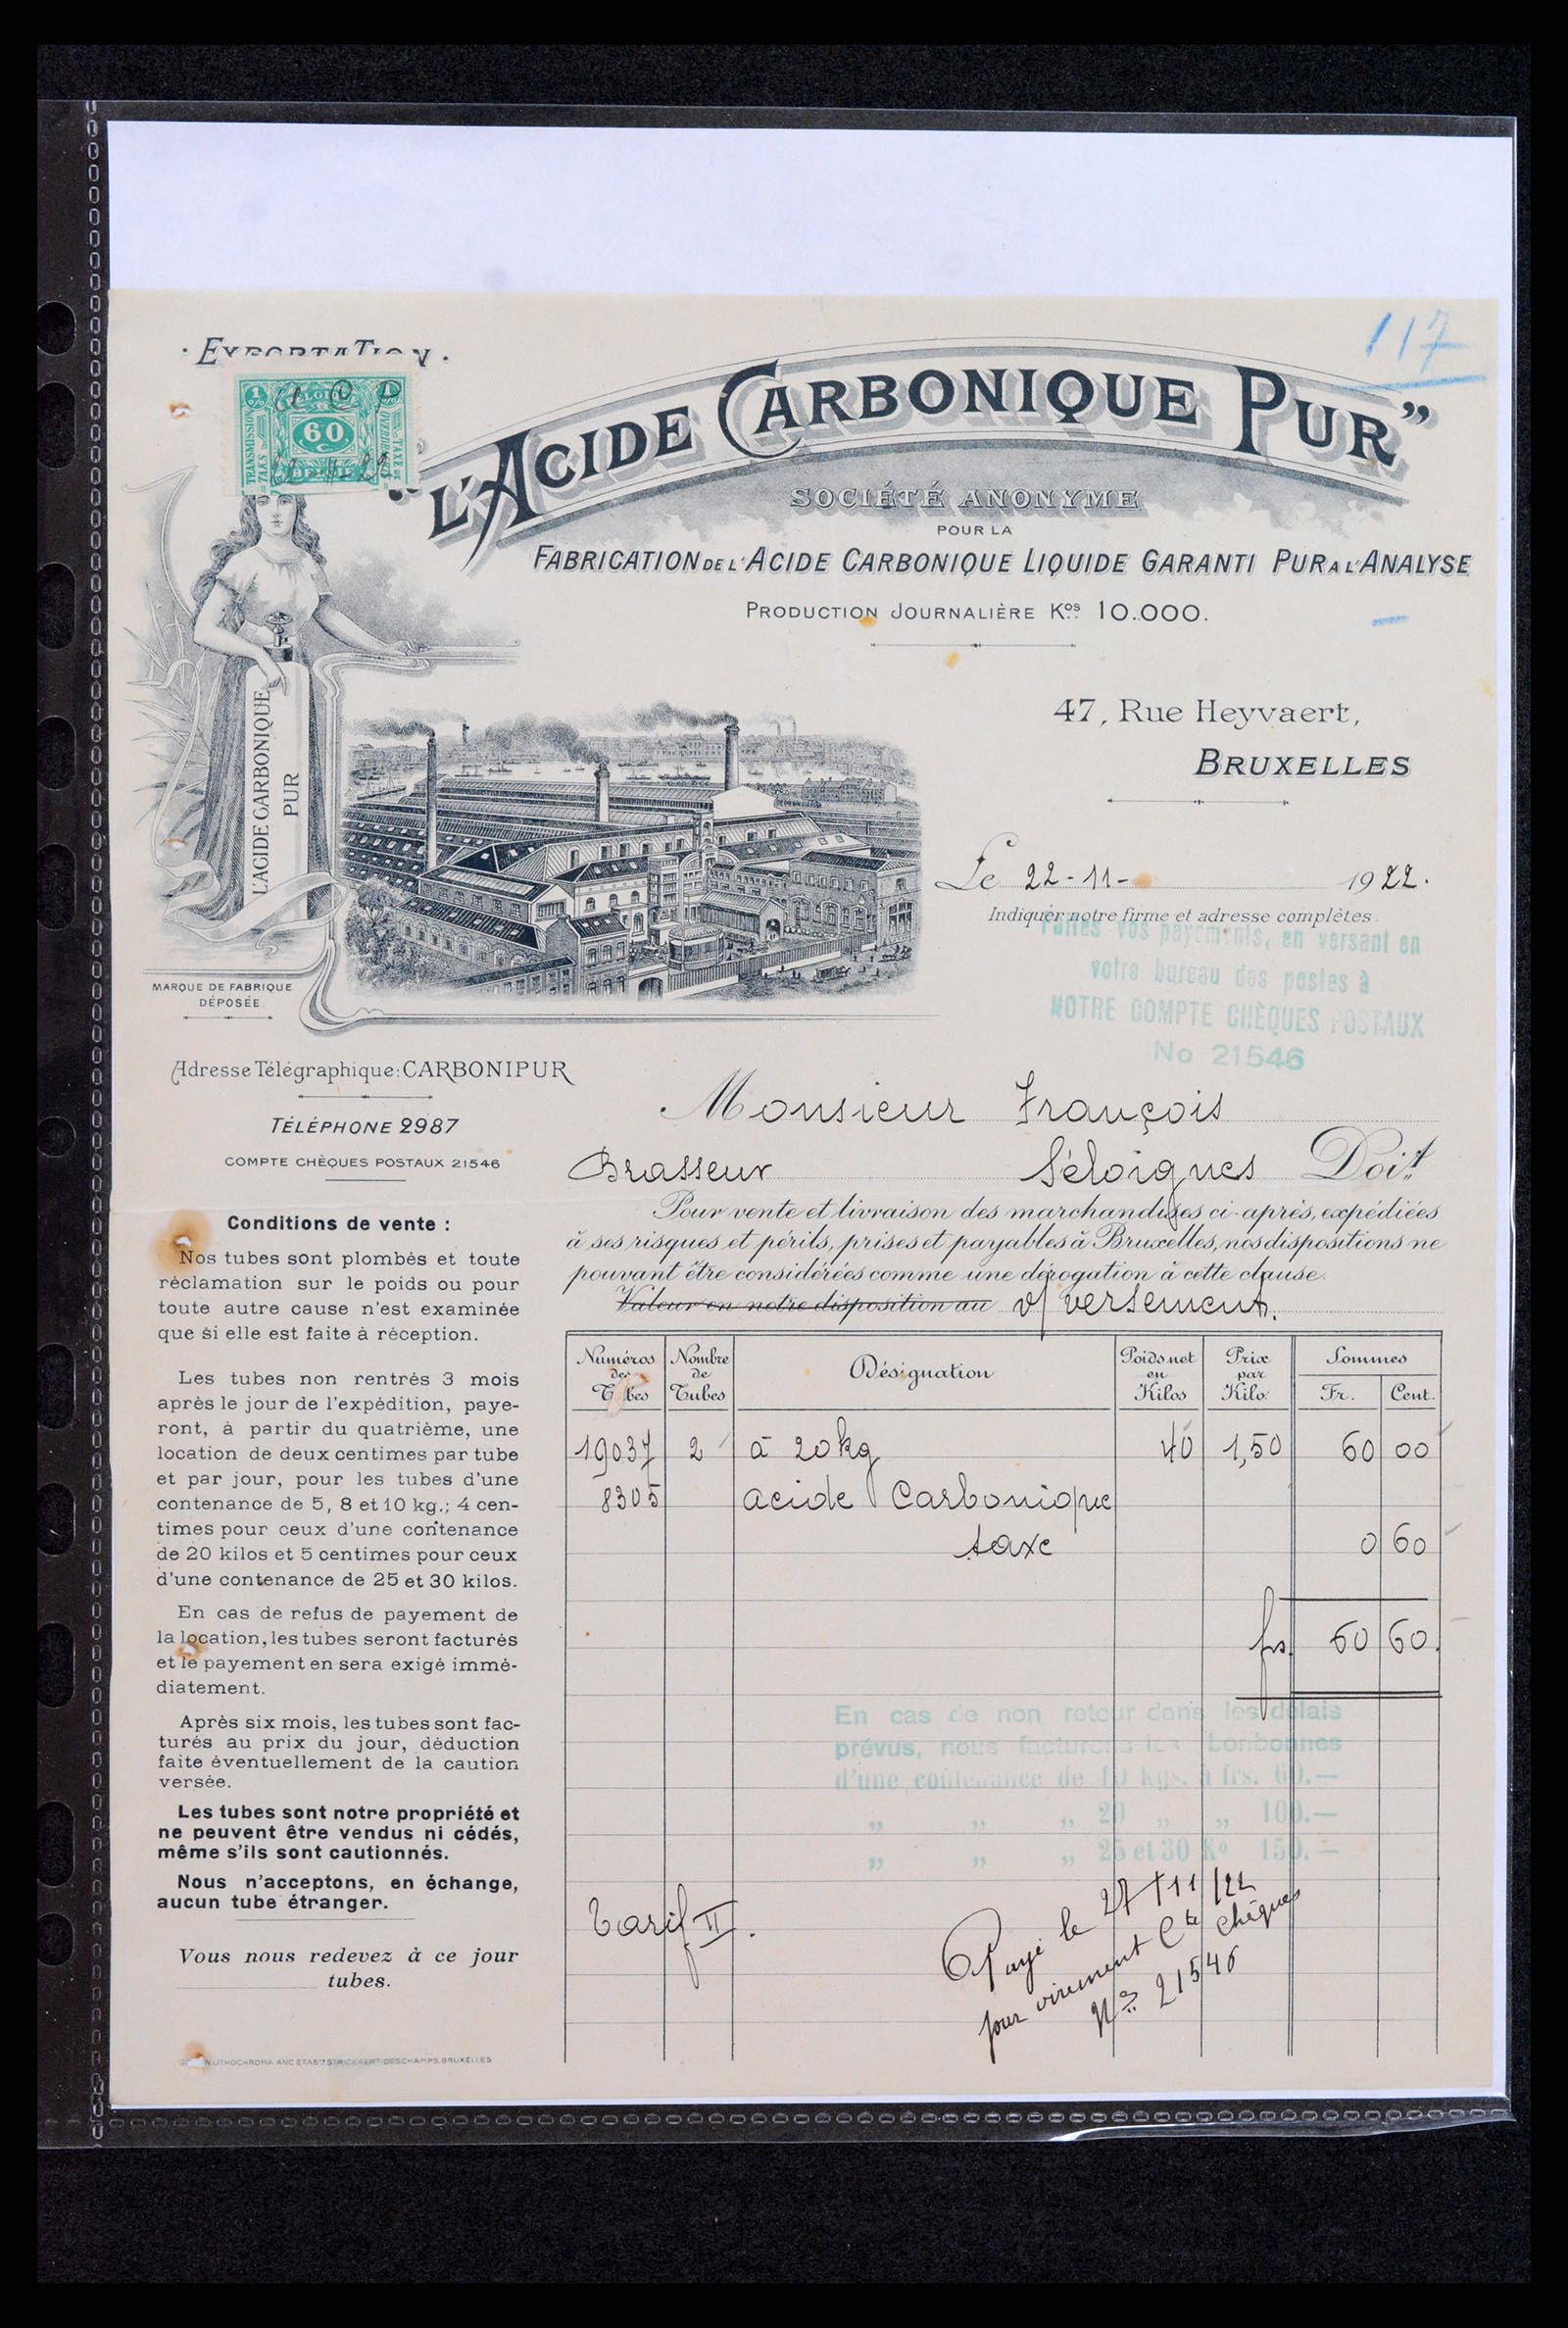 117
· EXPORTATION ·
1%
BELGIQUE
60
C
BELGIË
22-11-22
"L'ACIDE CARBONIQUE PUR"
SOCIÉTÉ ANONYME
POUR LA
FABRICATION DE L'ACIDE CARBONIQUE LIQUIDE GARANTI PUR A L'ANALYSE
PRODUCTION JOURNALIÈRE Kos 10.000.
L'ACIDE CARBONIQUE
PUR
MARQUE DE FABRIQUE
DÉPOSÉE.
47, Rue Heyvaert,
BRUXELLES
Le 22-11- 1922.
Indiquer notre firme et adresse complètes.
Faites vos payements, en versant en
votre bureau des postes à
NOTRE COMPTE CHÈQUES POSTAUX
No 21546
Adresse Télégraphique: CARBONIPUR
TÉLÉPHONE 2987
COMPTE CHÈQUES POSTAUX 21546
Monsieur François
Brasseur Séloignes Doit
Pour vente et livraison des marchandises ci-après, expédiées
à ses risques et périls, prises et payables à Bruxelles, nos dispositions ne
pouvant être considérées comme une dérogation à cette clause.
Valeur en notre disposition au v/ versement.
Conditions de vente :
Nos tubes sont plombés et toute
réclamation sur le poids ou pour
toute autre cause n'est examinée
que si elle est faite à réception.
Les tubes non rentrés 3 mois
après le jour de l'expédition, paye-
ront, à partir du quatrième, une
location de deux centimes par tube
et par jour, pour les tubes d'une
contenance de 5, 8 et 10 kg.; 4 cen-
times pour ceux d'une contenance
de 20 kilos et 5 centimes pour ceux
d'une contenance de 25 et 30 kilos.
En cas de refus de payement de
la location, les tubes seront facturés
et le payement en sera exigé immé-
diatement.
Après six mois, les tubes sont fac-
turés au prix du jour, déduction
faite éventuellement de la caution
versée.
Les tubes sont notre propriété et
ne peuvent être vendus ni cédés,
même s'ils sont cautionnés.
Nous n'acceptons, en échange,
aucun tube étranger.
Vous nous redevez à ce jour
tubes.
Numéros des Tubes Nombre de Tubes Désignation Poids net en Kilos Prix par Kilo Sommes
Fr. Cent.
19037 2 à 20 kg 40 1,50 60 00
8305 acide Carbonique
taxe 0 60
frs. 60 60.
En cas de non retour dans les délais
prévus, nous facturons les Bonbonnes
d'une contenance de 10 kgs. à frs. 60.—
„ „ „ 20 „ „ 100.—
„ „ „ 25 et 30 Ko 150.—
Tarif II.
Payé le 27/11/22
pour virement Cte chèques
No 21546
LITHOCHROMA ANC ETABTS STRICKAERT-DESCHAMPS, BRUXELLES